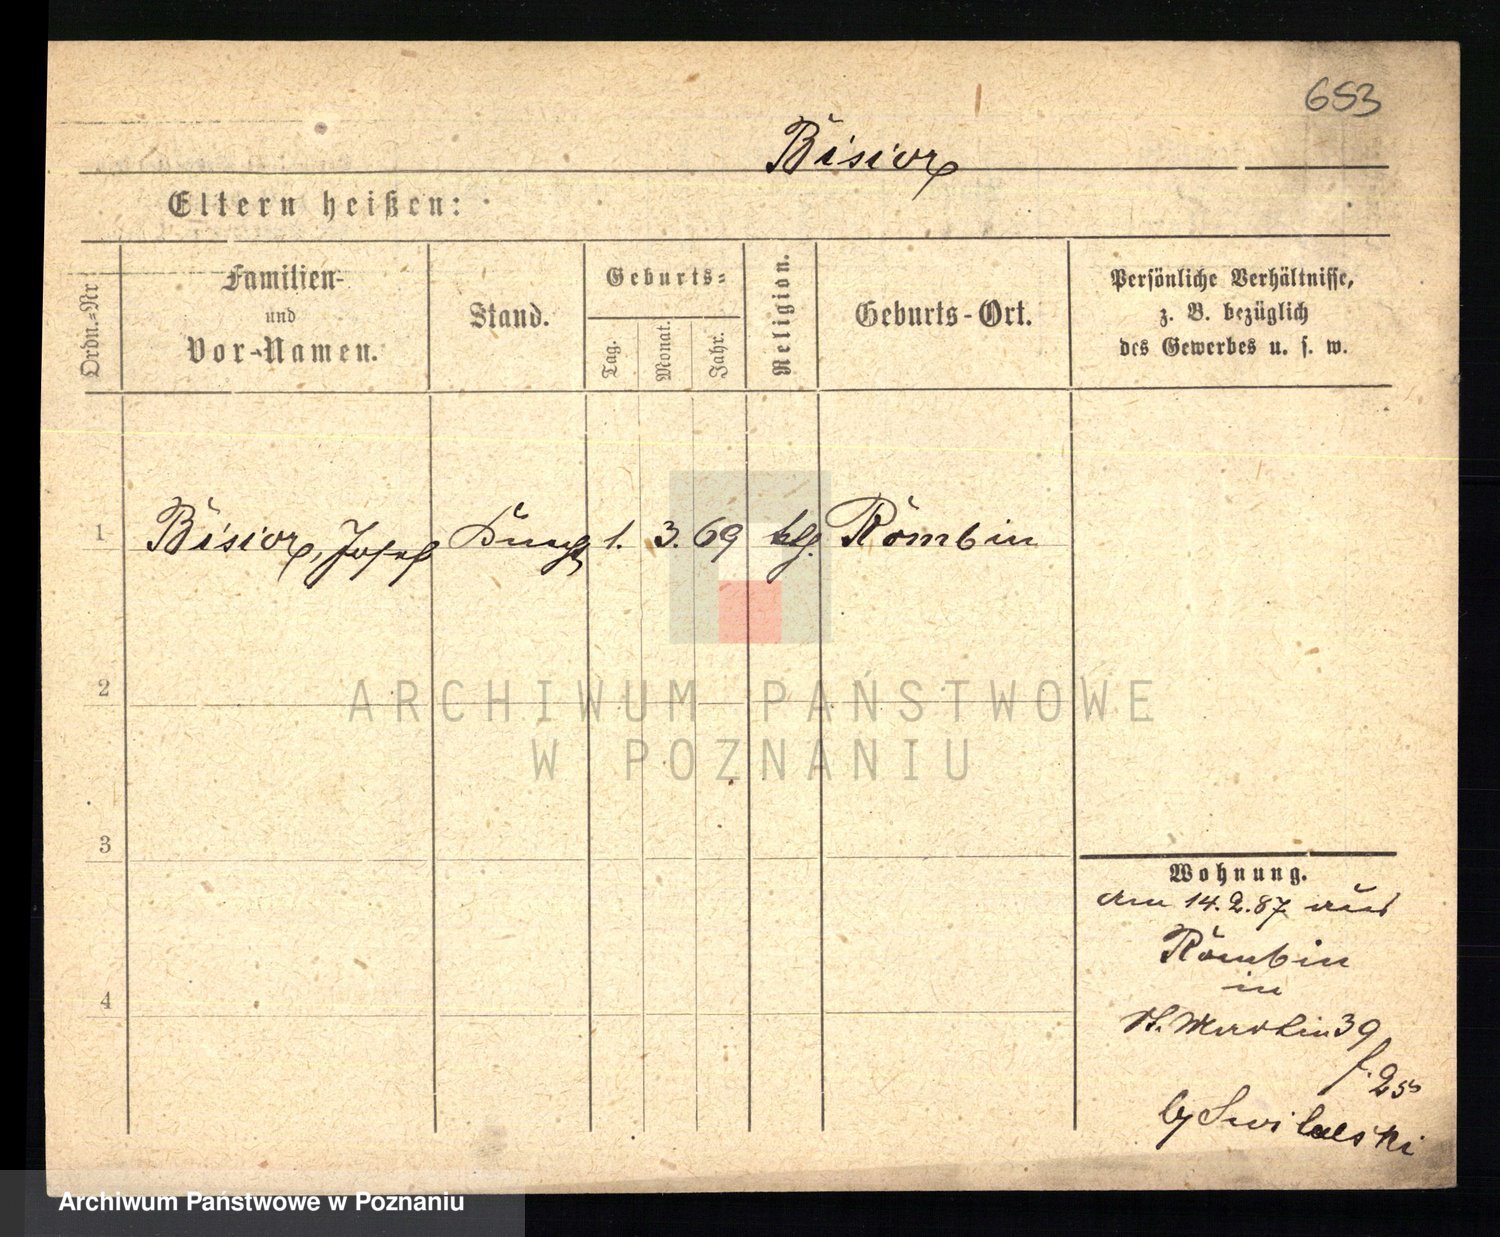 653
Bisior
Eltern heißen:
Ordn.-Nr
Familien-
und
Vor-Namen.
Stand.
Geburts-
Tag.
Monat.
Jahr.
Religion.
Geburts-Ort.
Persönliche Verhältnisse,
z. B. bezüglich
des Gewerbes u. s. w.
1 Bisior, Josef 1. 3. 69 ktg. Rombin
2
3
4
Wohnung.
am 14.2.87 aus
Rombin
in
St. Martin 39
by
ARCHIWUM PAŃSTWOWE
W POZNANIU
Archiwum Państwowe w Poznaniu